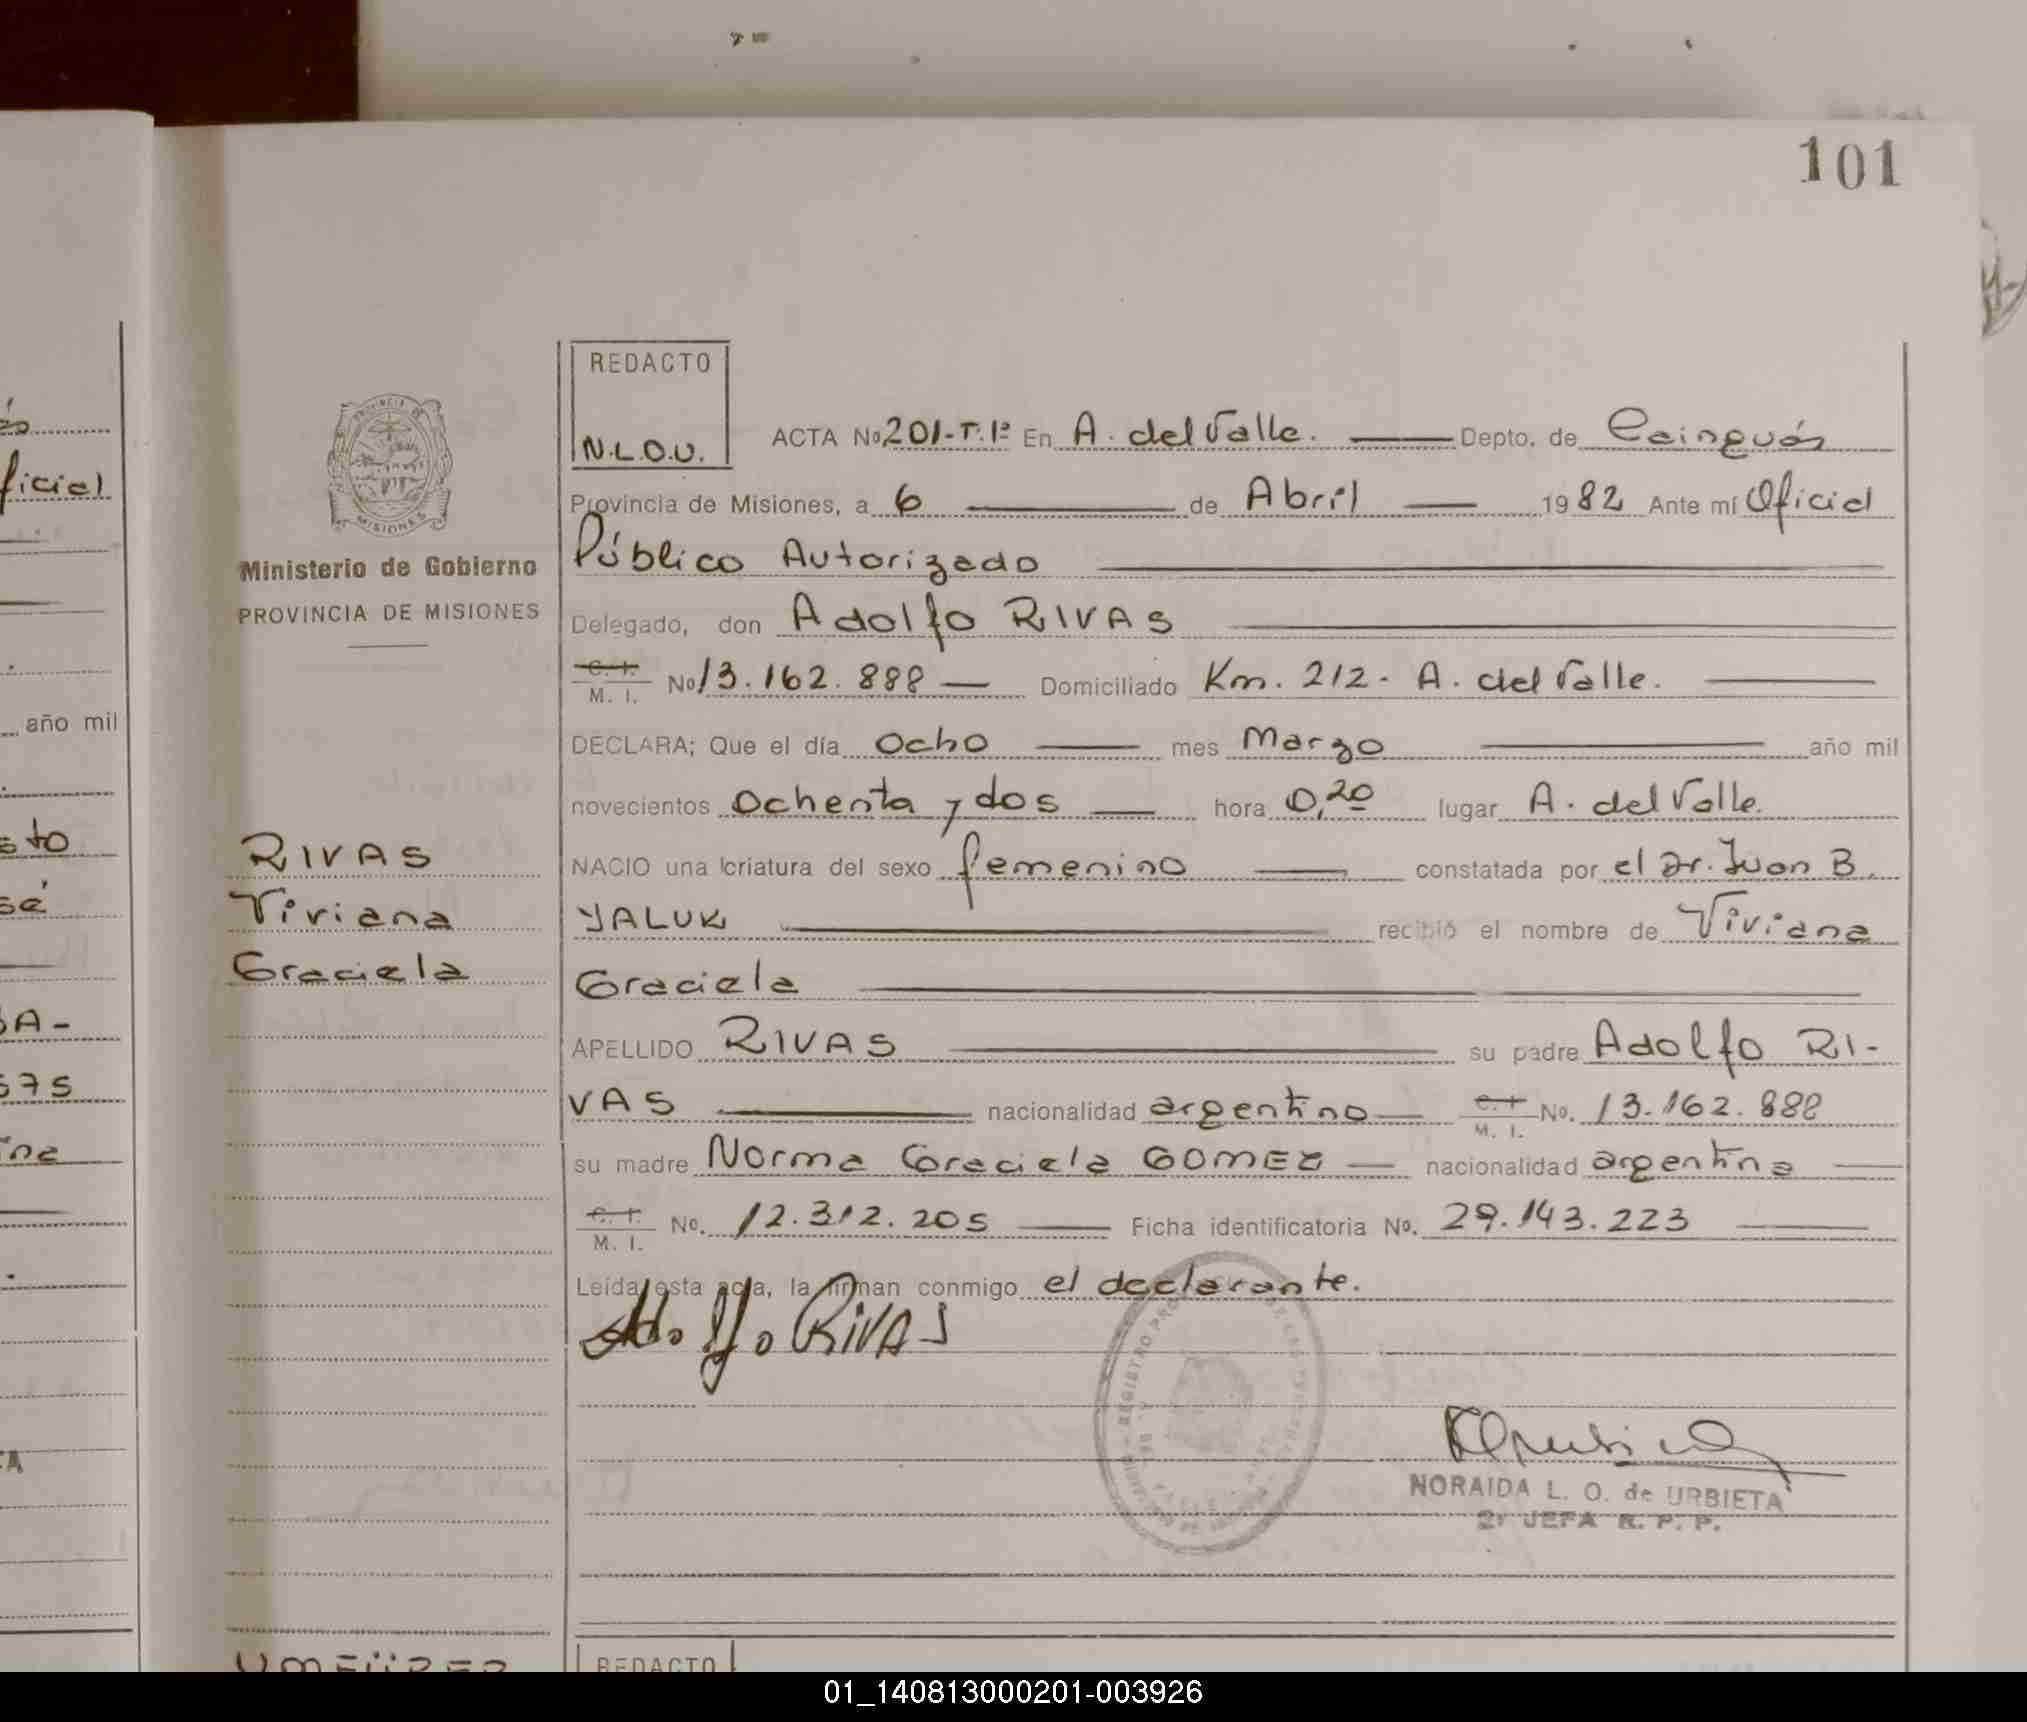 101
REDACTO
N.L.O.U.
ACTA No 201-T.1º En A. del Valle. Depto. de Cainguás
Provincia de Misiones, a 6 de Abril 1982 Ante mí Oficial
Público Autorizado
Delegado, don Adolfo RIVAS
C. I. M. I. No 13.162.888 Domiciliado Km. 212 - A. del Valle.
DECLARA; Que el día ocho mes Marzo año mil
novecientos ochenta y dos hora 0,20 lugar A. del Valle.
NACIO una criatura del sexo femenino constatada por el Dr. Juan B.
YALUK recibió el nombre de Viviana
Graciela
APELLIDO RIVAS su padre Adolfo RI-
VAS nacionalidad argentino C. I. M. I. No. 13.162.888
su madre Norma Graciela GOMEZ nacionalidad argentina
C. I. M. I. No. 12.312.205 Ficha identificatoria No. 29.143.223
Leída esta acta, la firman conmigo el declarante.
Adolfo RIVAS
NORAIDA L. O. de URBIETA
2ª JEFA R. P. P.
MISIONES
Ministerio de Gobierno
PROVINCIA DE MISIONES
RIVAS
Viviana
Graciela
REDACTO
ficial
año mil
sto
sé
BA-
575
ina
TA
01_140813000201-003926